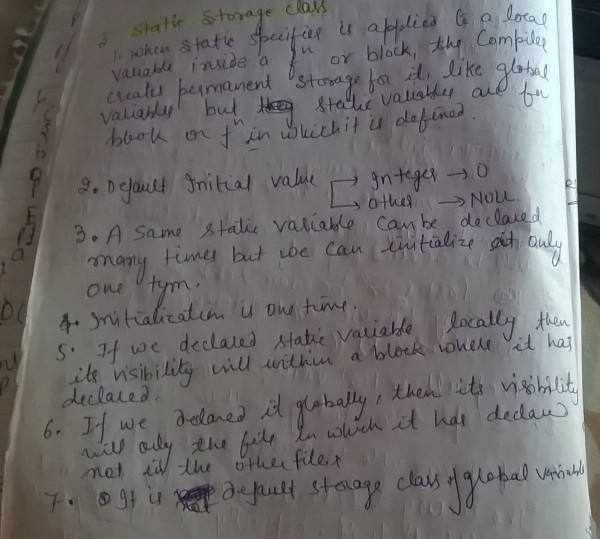 2 Static Storage class
1. when static specifier is applied to a local
variable inside a fn or block, the Compiler
creates permanent storage for it, like global
variables but static variables are for
block or fn in which it is defined.
2. Default Initial value → Integer → 0
→ other → NULL
3. A same static variable can be declared
many times but we can initialize it only
one tym.
4. Initialization is one time.
5. If we declared static variable locally then
its visibility will within a block where it has
declared.
6. If we declared it globally, then its visibility
will only the file in which it has declare
not in the other files
7. It is not default storage class of global variable